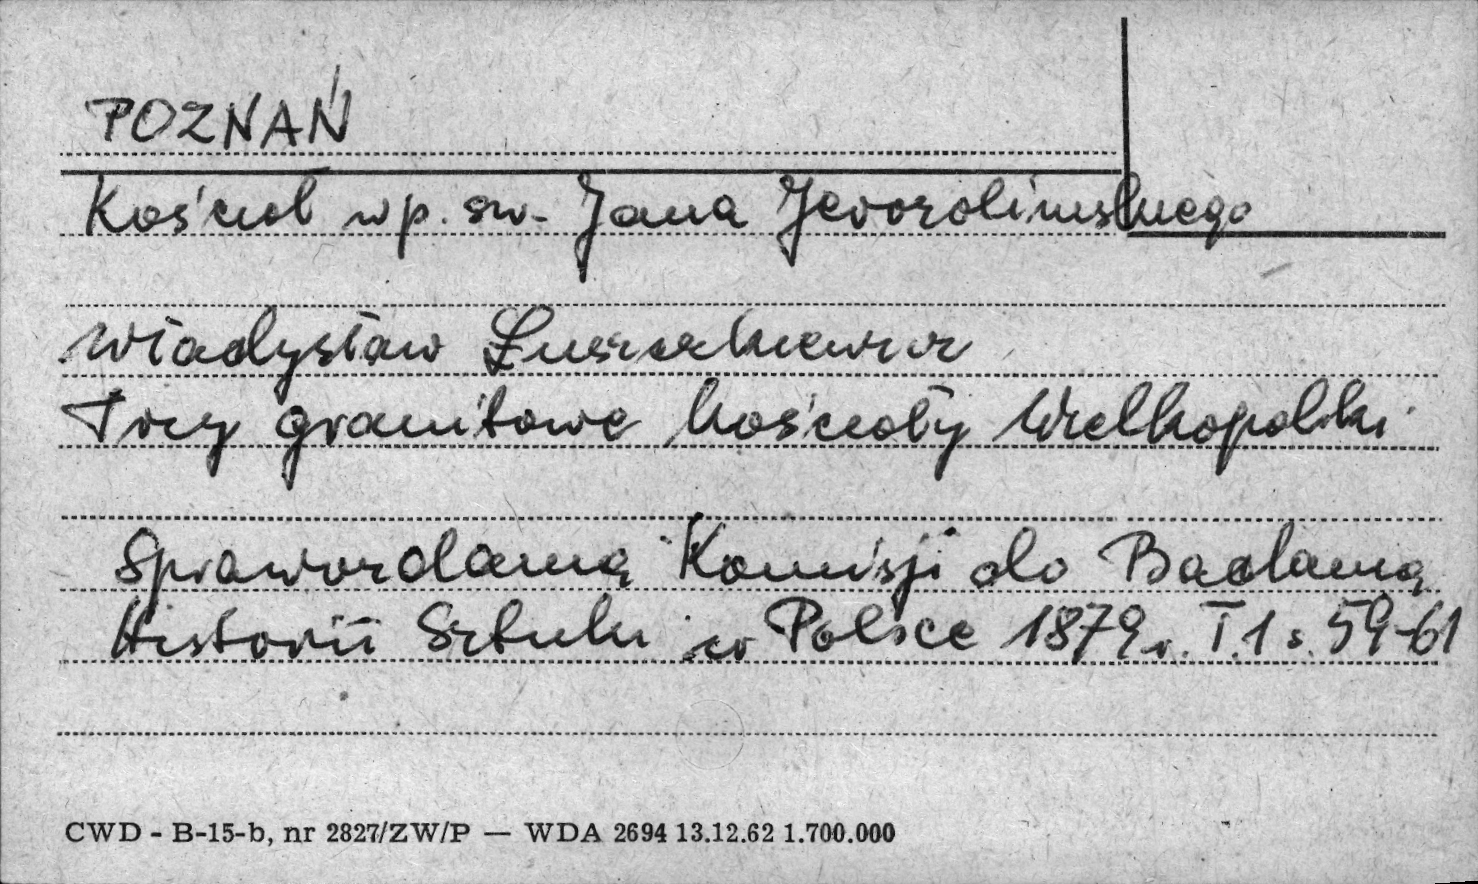 POZNAŃ
Kościół wp. św. Jana Jerozolimskiego
Władysław Łuszczkiewicz
Trzy granitowe kościoły Wielkopolski
Sprawozdania Komisji do Badania
Historii Sztuki w Polsce 1879 r. T.1 s. 59-61
CWD - B-15-b, nr 2827/ZW/P — WDA 2694 13.12.62 1.700.000